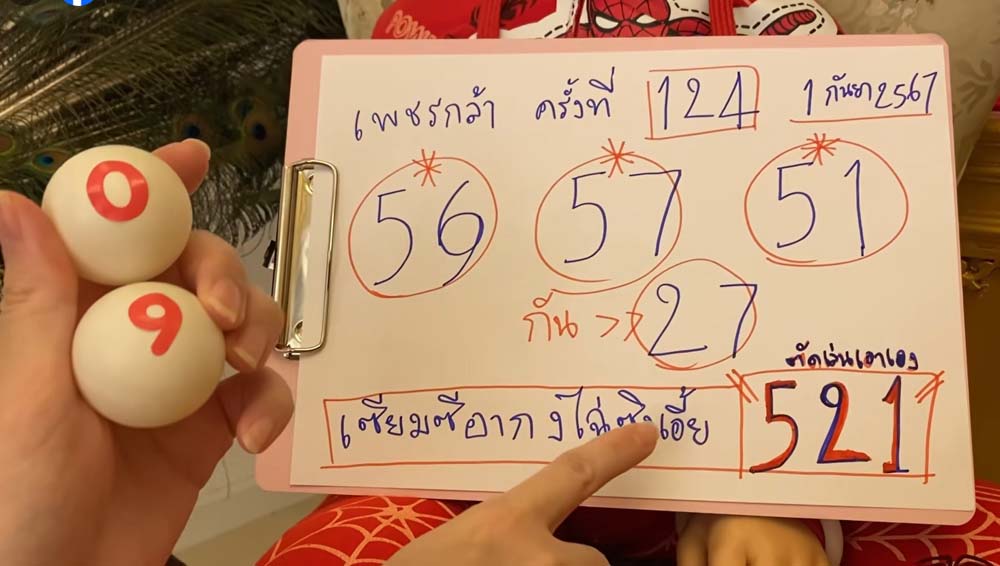 เพชรกล้า ครั้งที่ 124 1 กันยา 2567
56 57 51
0
9
กัน >> 27
คัดเน้นเอาเอง
เซียมซีอากงไฉ่ซิงเอี้ย 521